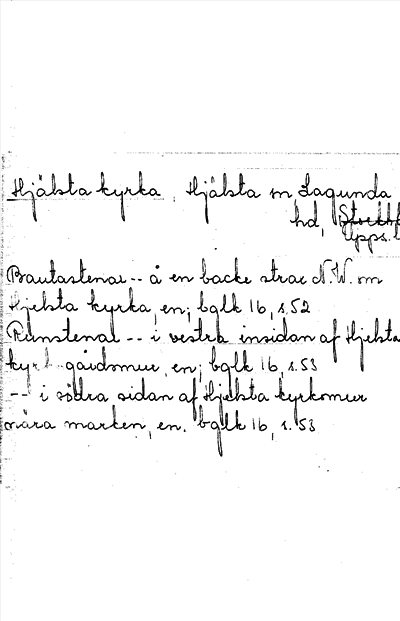 Hjälsta kyrka, Hjälsta sn, Lagunda
hd, Stockh
Upps. l
Bautastenar -- å en backe strax N.W. om
Hjelsta kyrka, en; bglk 16, s. 52
Runstenar -- i vestra insidan af Hjelsta
kyrkogårdsmur, en; bglk 16, s. 53
-- i södra sidan af Hjelsta kyrkomur
nära marken, en. bglk 16, s. 53